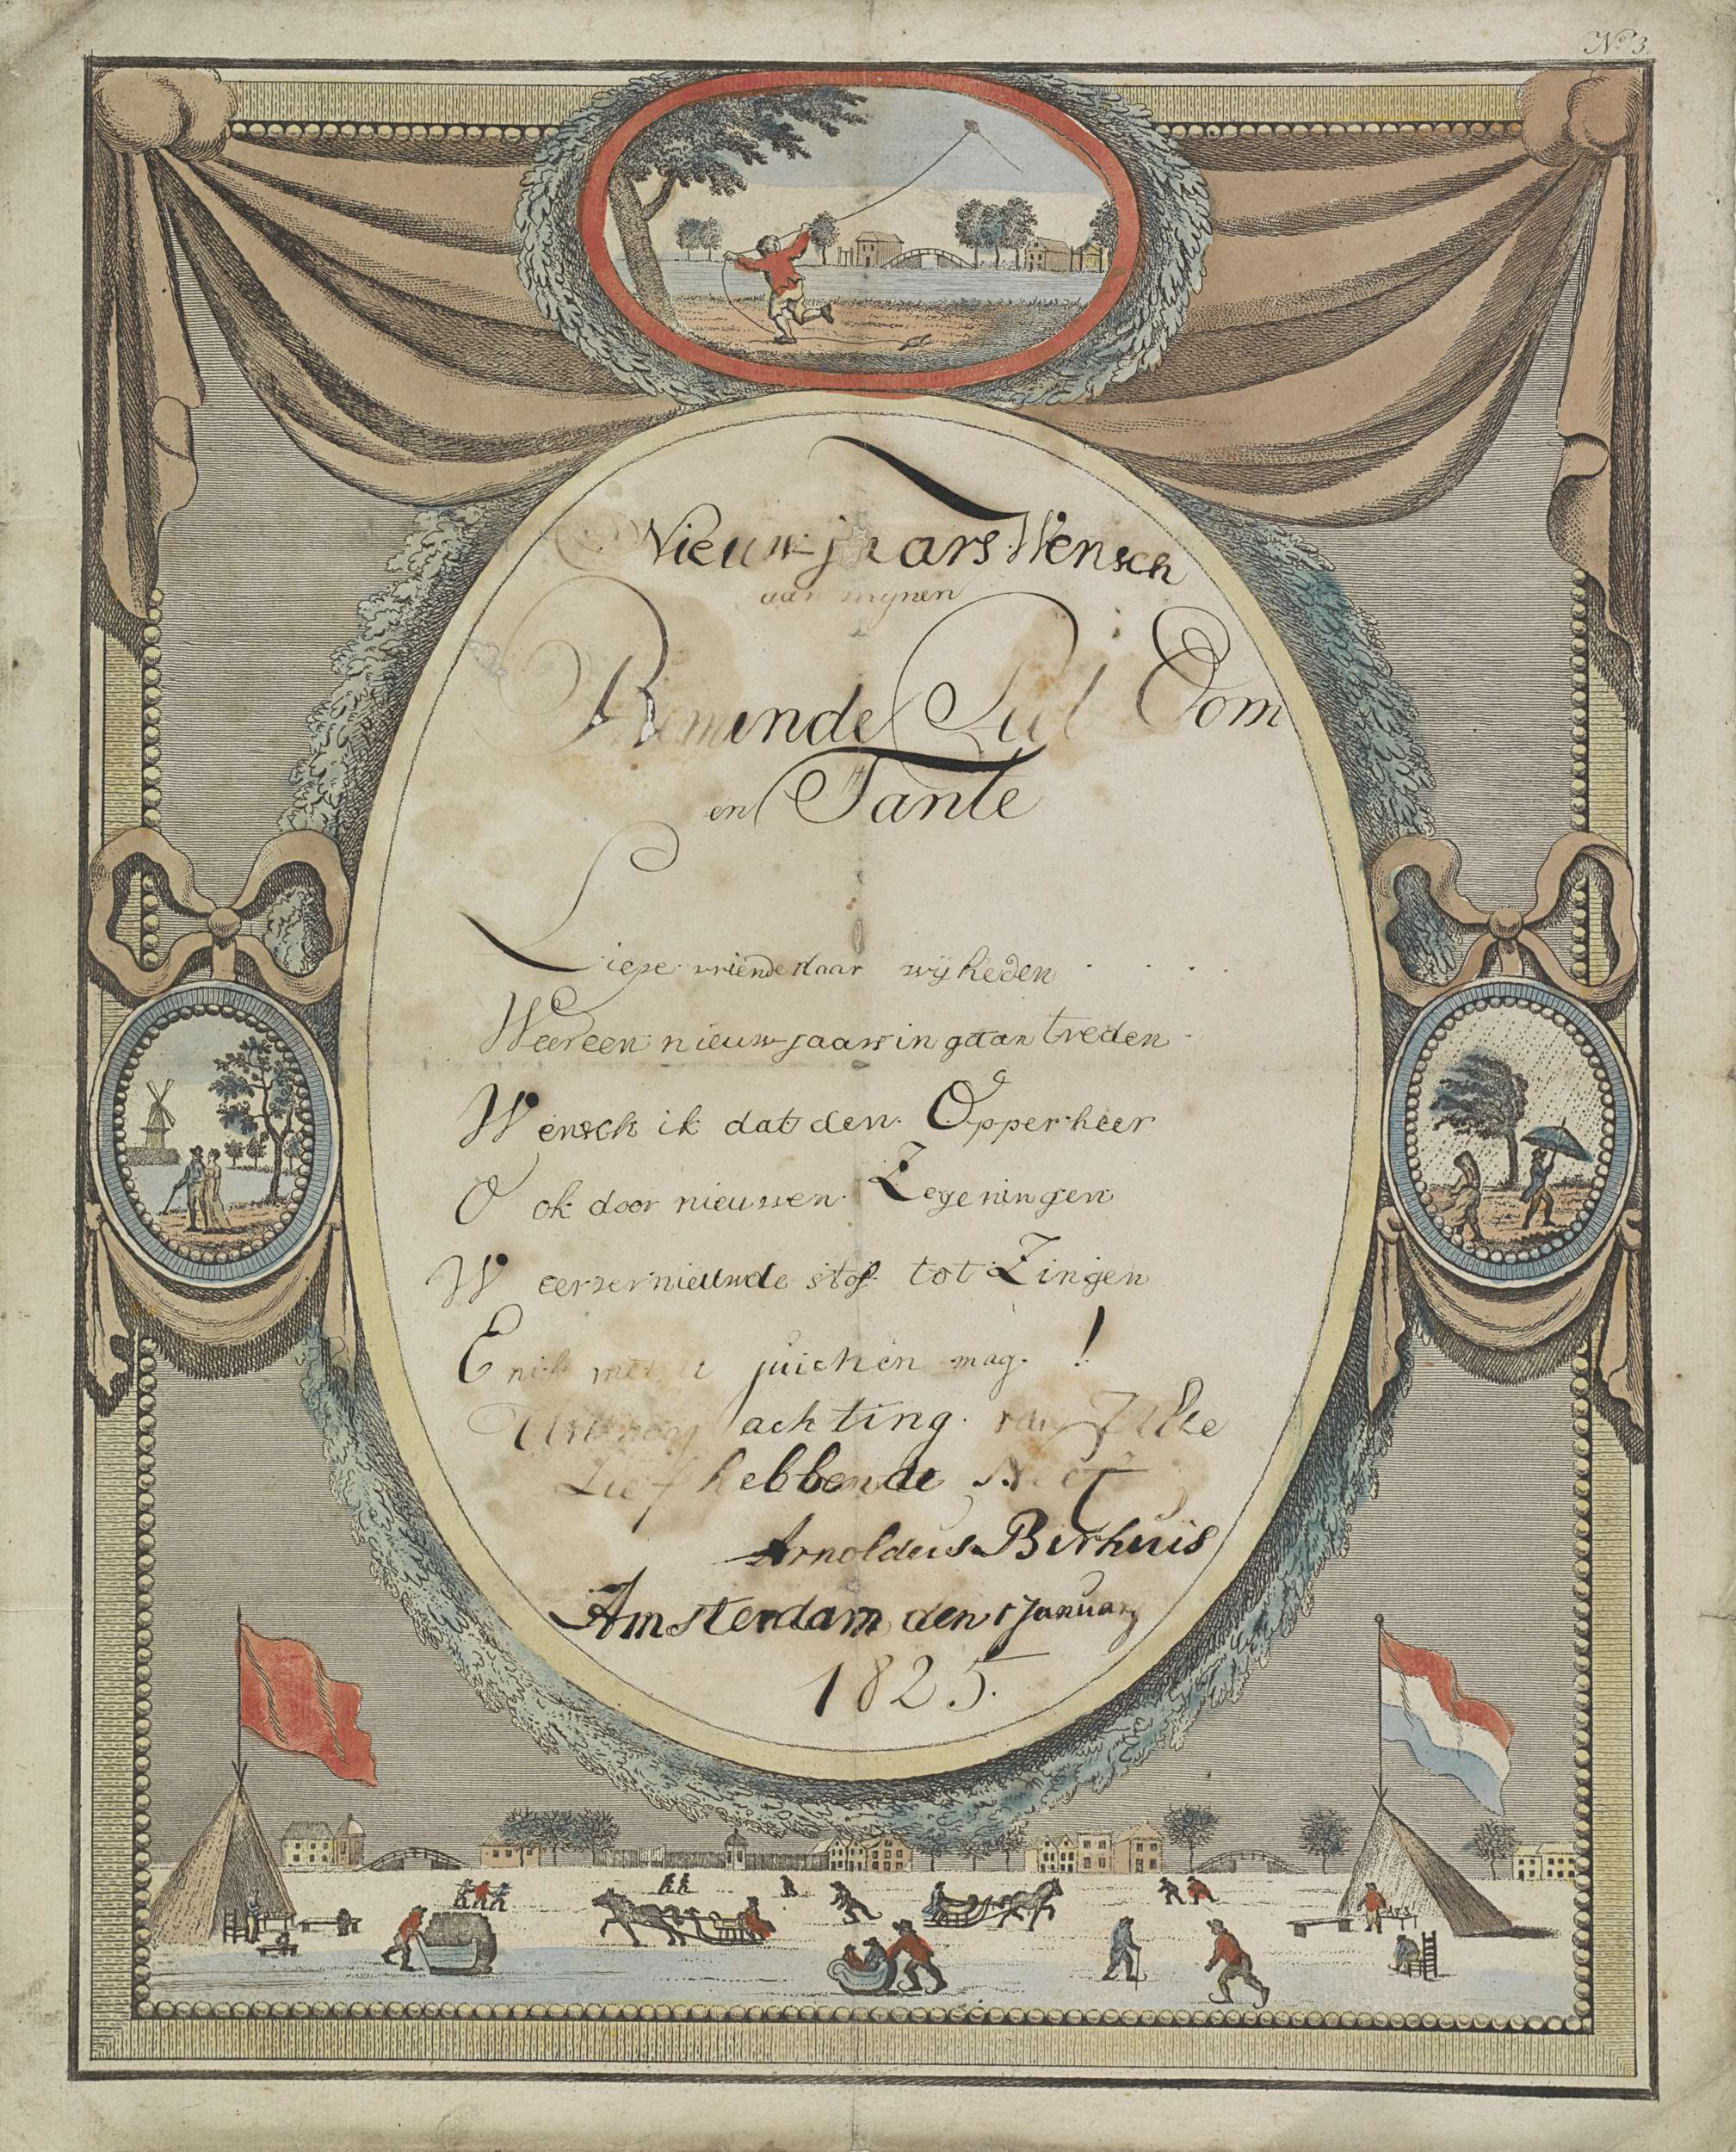 No 3.
Nieuw-jaars Wensch
aan mynen
Beminde
Oom
en Tante
Liepe vriende daar wij heden
Weer een nieuw jaars in gaan treden
Wensch ik dat den Opperheer
Ook door nieuwen Zegeningen
Weer vernieuwde stof tot Zingen
En ik met u juichen mag !
achting van
Lief hebbende Neef
Arnoldus
Amsterdam den 1 January
1825.